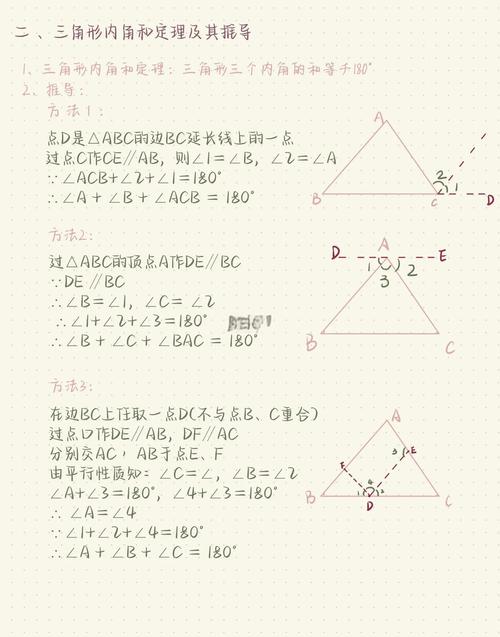 二、三角形内角和定理及其推导
1、三角形内角和定理：三角形三个内角的和等于180°
2、推导：
方法1：
点D是△ABC的边BC延长线上的一点
过点C作CE∥AB，则∠1=∠B，∠2=∠A
∵∠ACB+∠2+∠1=180°
∴∠A+∠B+∠ACB=180°
A
B
C
2
1
D
方法2：
过△ABC的顶点A作DE∥BC
∵DE∥BC
∴∠B=∠1，∠C=∠2
∴∠1+∠2+∠3=180°
∴∠B+∠C+∠BAC=180°
D
A
E
1
2
3
B
C
方法3：
在边BC上任取一点D(不与点B、C重合)
过点D作DE∥AB，DF∥AC
分别交AC，AB于点E、F
由平行性质知：∠C=∠，∠B=∠2
∠A+∠3=180°，∠4+∠3=180°
∴∠A=∠4
∵∠1+∠2+∠4=180°
∴∠A+∠B+∠C=180°
A
3
E
F
4
1
2
B
D
C